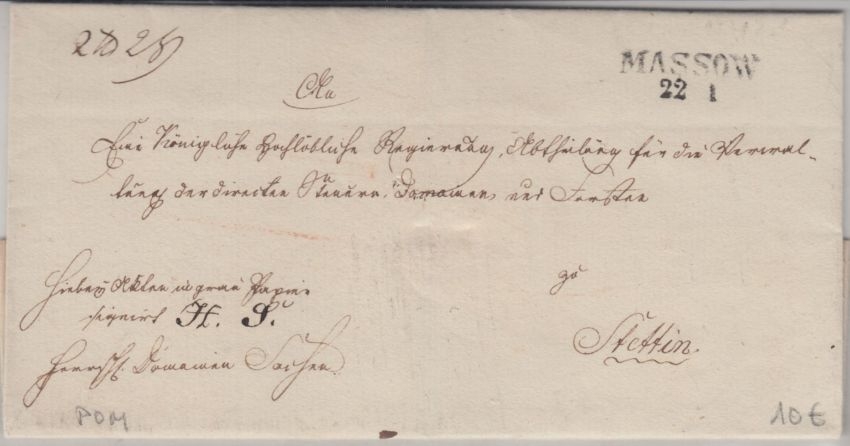 MASSOW
22 1
An
Eine Königliche Hochlöbliche Regierung, Abtheilung für die Verwal-
tung der directen Steuern, Domainen und Forsten
zu
Stettin.
Hiebey Akten in grau Papier
signirt H. S.
Herrschl. Domainen Sachen.
POM
10 €